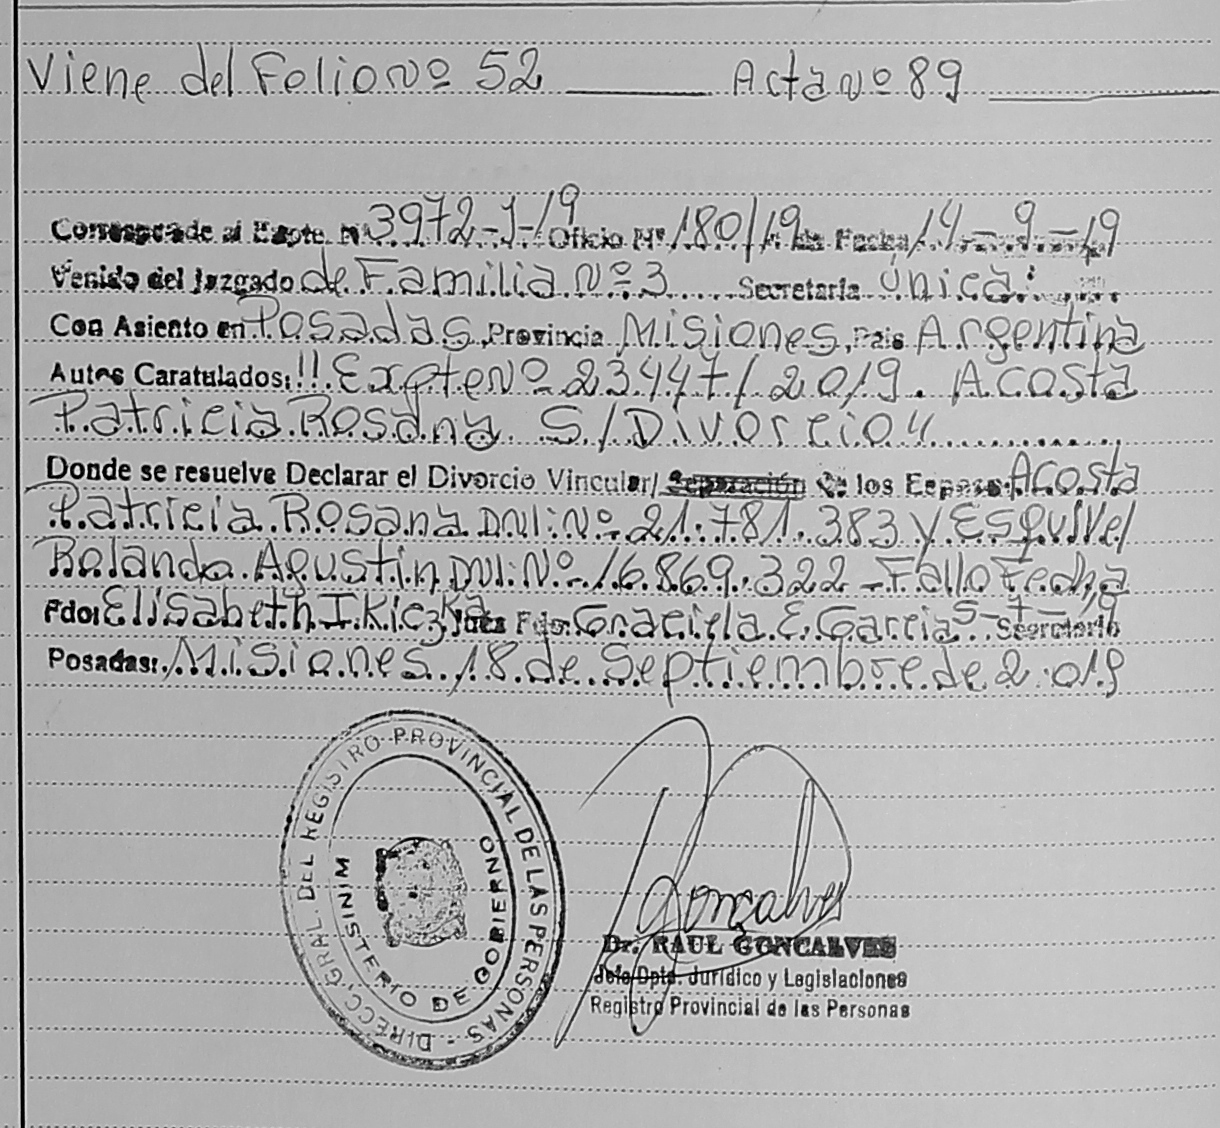 Viene del Folio Nº 52 ______ Acta Nº 89 ______
Corresponde al Expte. Nº 3972-J-19 Oficio Nº 180/19 de Fecha 14-9-19
Venido del Juzgado de Familia Nº 3 Secretaria única
Con Asiento en Posadas, Provincia Misiones, Pais Argentina
Autos Caratulados: "Expte Nº 23447/2019. Acosta
Patricia Rosana S/Divorcio"
Donde se resuelve Declarar el Divorcio Vincular/ Separación de los Esposos Acosta
Patricia Rosana DNI: Nº 21.781.383 y Esquivel
Rolando Agustin DNI: Nº 16.869.322 - Fallo Fecha
Fdo: Elisabeth I. Kiczka Juez Fdo: Graciela E. Garcia 5-7-19 Secretario
Posadas: Misiones 18 de Septiembre de 2019
DIRECC. GRAL. DEL REGISTRO PROVINCIAL DE LAS PERSONAS -
MINISTERIO DE GOBIERNO
Goncalves
Dr. RAUL GONCALVES
Jefe Dpto. Jurídico y Legislaciones
Registro Provincial de las Personas